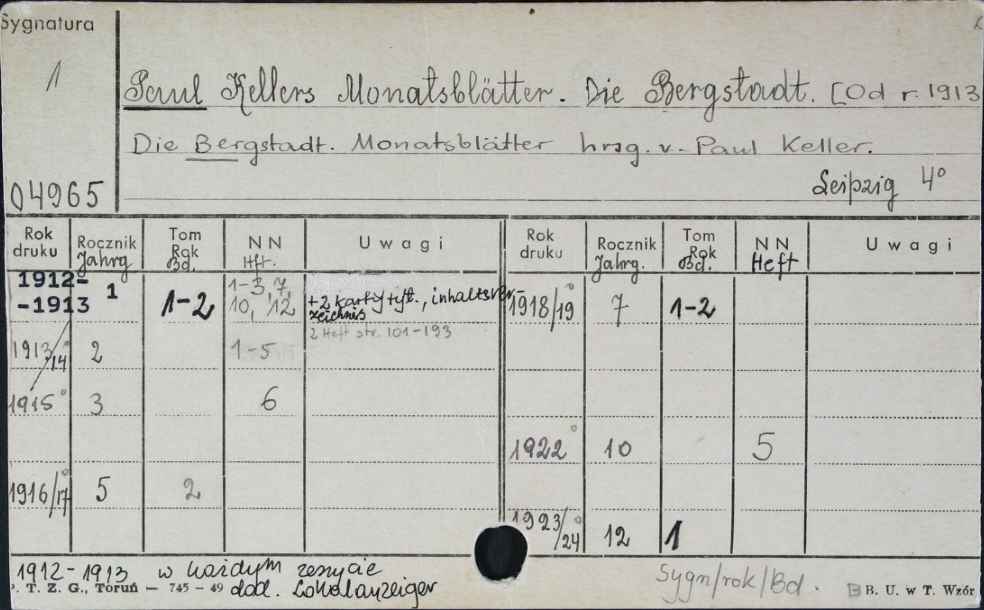 Sygnatura
1
04965
Paul Kellers Monatsblätter. Die Bergstadt. [Od r. 1913
Die Bergstadt. Monatsblätter hrsg. v. Paul Keller.
Leipzig 4°
Rok druku Rocznik Jahrg Tom Rok Bd. NN Hft. Uwagi Rok druku Rocznik Jahrg. Tom Rok Bd. NN Heft Uwagi
1912-1913 1 1-2 1-3, 7, 10, 12 + 2 karty tyt., inhaltsverzeichnis 1918/19° 7 1-2
2 Heft str. 101-193
1913/14° 2 1-5
1915° 3 6
1922° 10 5
1916/17° 5 2
1923/24° 12 1
1912-1913 w każdym zeszycie
dod. Lokalanzeiger
Sygn/rok/Bd.
P. T. Z. G., Toruń — 745 - 49
B. U. w T. Wzór